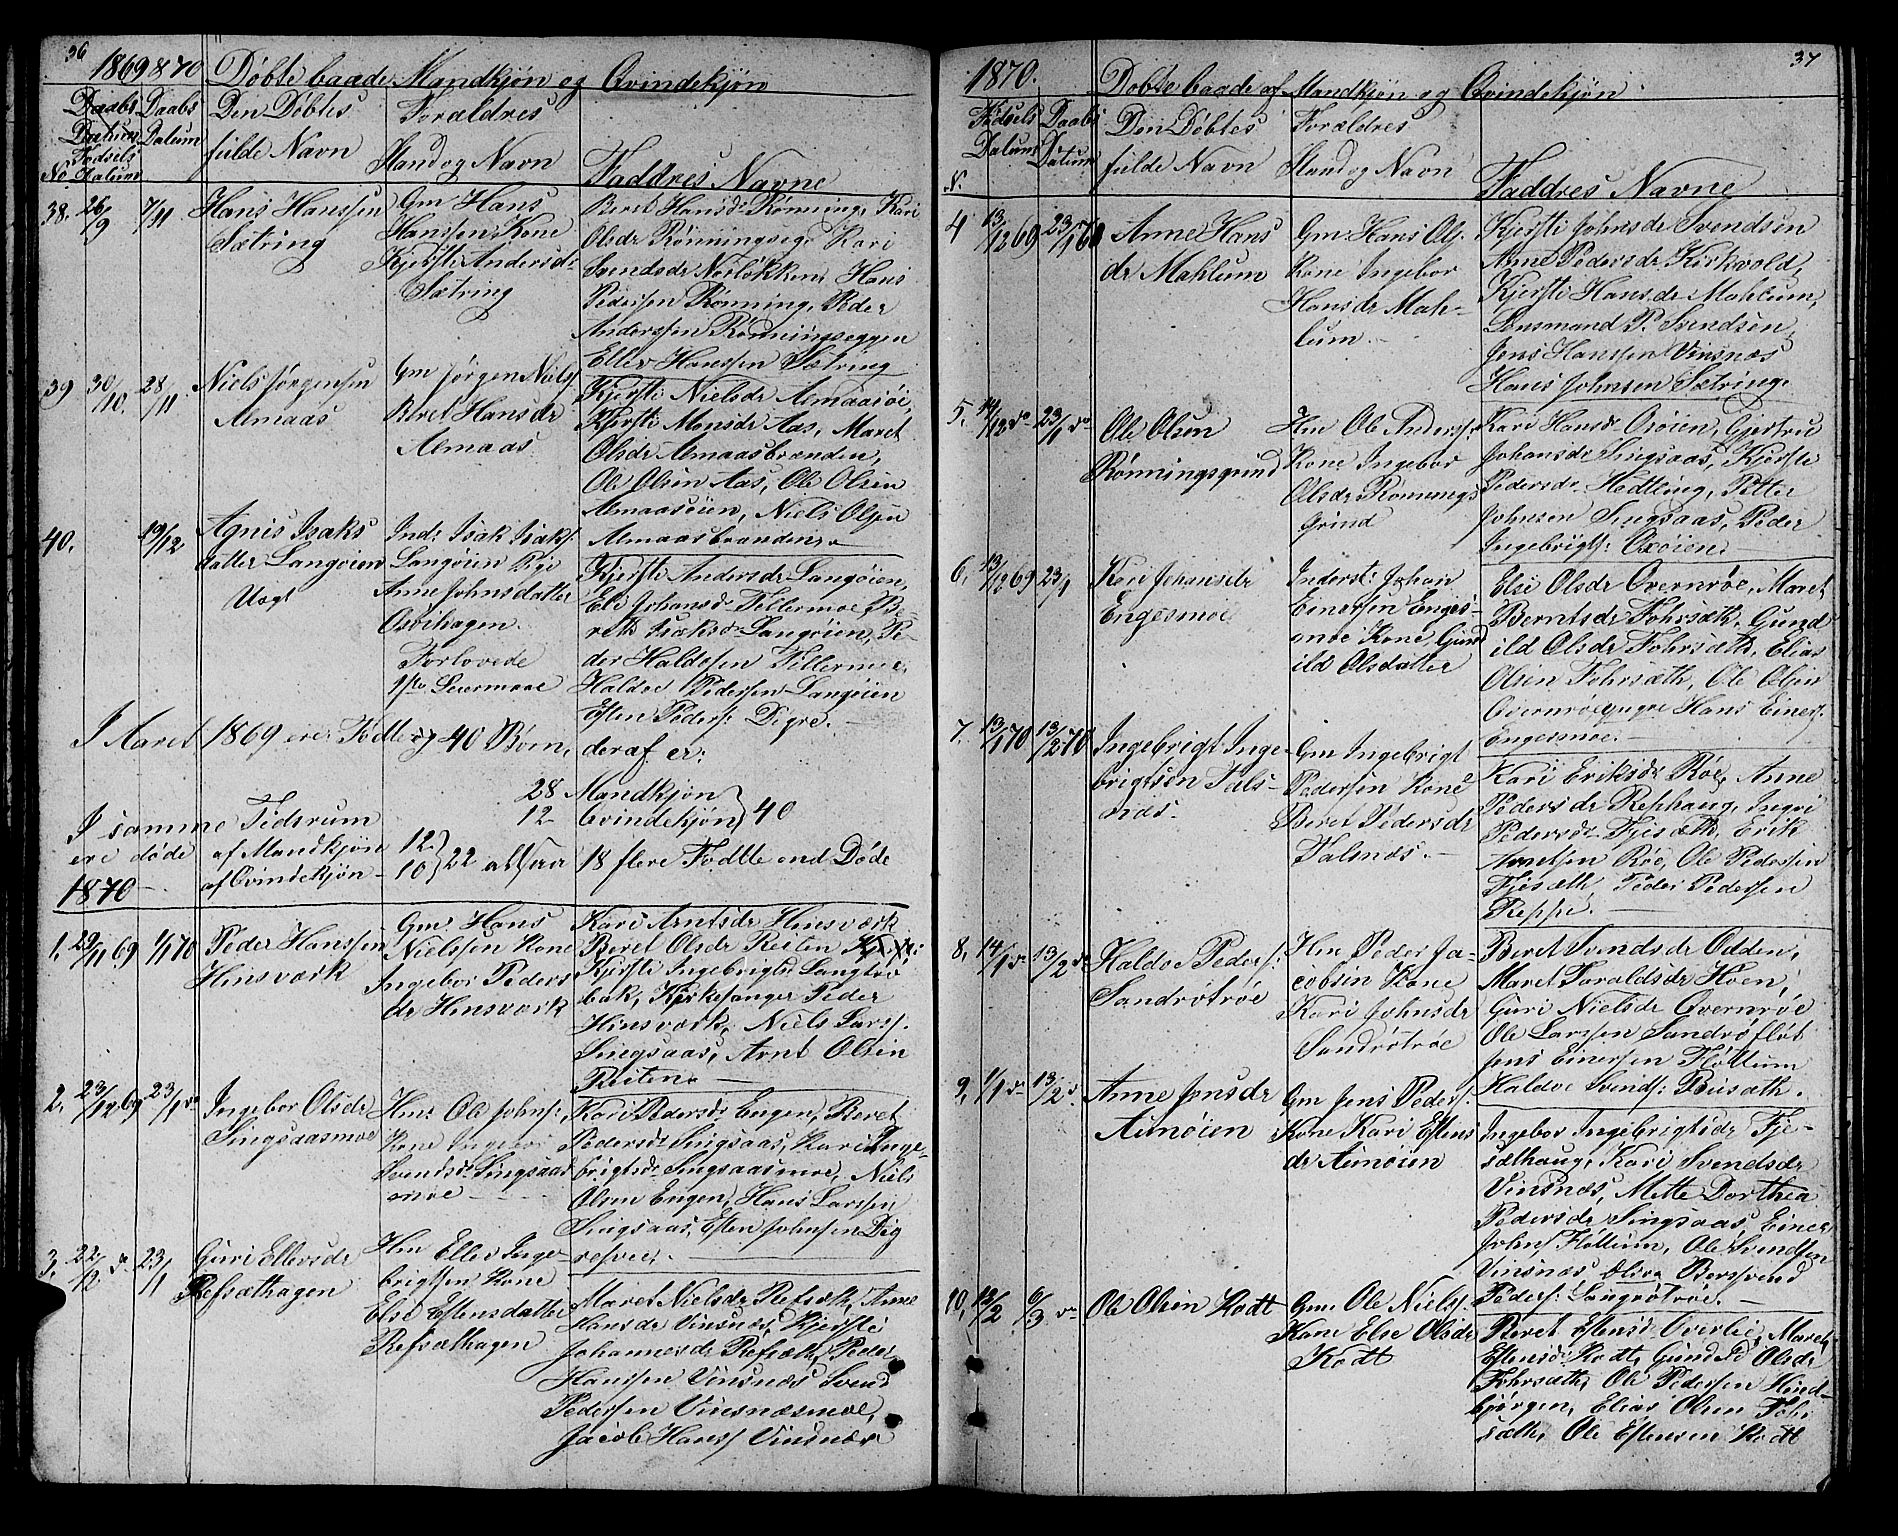 36
1869 & 70 Døbte baade Mandkjøn og Qvindekjøn
No
Daabs Datum
Fødsels Datum
Daabs Datum
Den Døbtes
fulde Navn
Forældres
Stand og Navn
Faddres Navne
38. 26/9 7/11
Hans Hanssen
Sætring
Gm Hans
Hanssen Kone
Kjersti Andersd:
Sætring
Beret Hansdr Rønning, Kari
Olsdr Rønningseg Kari
Svendsdr Norløkken, Hans
Pedersen Rønning, Peder
Anderssen Rønningseggen
Ellev Hanssen Sætring
39 30/10. 28/11
Niels Jørgensen
Almaas
Gm Jørgen Niels/
Beret Hansdr
Almaas
Kjersti Nielsdr Almaasøi,
Kjersti Monsdr Aas, Maret
Olsdr Almaasbrænden,
Ole Olsen Aas, Ole Olsen
Almaasøien, Niels Olsen
Almaasbrænden
40. 19/12
Agnis Isaks
datter Langøien
Uægt
Ind: Isak Isaks/
Langøien Pige
Anne Johnsdatter
Osbihagen
Forlovede
1ste Leiermaal
Kjersti Andersdr Langøien,
Eli Johansdr Tellermoe, Be-
rit Isaksdr Langøien, Pe-
der Haldosen Tellermoe,
Haldoe Pedersen Langøien
Esten Peders: Digre.
I Aaret 1869 ere Fødte 40 Børn, deraf er:
28 Mandkjøn
12 Qvindekjøn } 40
I samme Tidsrum
ere døde af Mandkjøn 12
af Qvindekjøn 10 } 22 altsaa 18 flere Fødte end Døde
1870
1. 29/11 69 1/1 70
Peder Hanssen
Hinsværk
Gm Hans
Nielssen Kone
Ingebor Peders
dr Hinsværk
Kari Arntsdr Hinsværk
Beret Olsdr Reiten
Kjersti Ingebrigtsdr Langlø
bak, Kirkesanger Peder
Hinsværk, Niels Larss.
Singsaas, Arnt Olsen
Reiten
2. 23/12 69 23/1 do
Ingebor Olsdr
Singsaasmoe
Hm: Ole Johns/:
Kone Ingebor
Svendsdr Singsaas
moe
Kari Pedersdr Engen, Beret
Pedersdr Singsaas, Kari Inge-
brigtsdr Singsaasmoe, Niels
Olsen Engen, Hans Larssen
Singsaas, Esten Johnsen Dig
resvee,
3. 22/12 do 23/1
Guri Ellevsdr
Refsæthagen
Hm Ellev Inge-
brigtsen Kone
Else Estensdatter
Refsæthagen
Maret Nielsdr Refsæth, Anne
Hansdr Vinsnæs, Kjersti
Johannesdr Refsæth, Peder
Hanssen Vinsnæs Svend
Pedersen Vinsnæsmoe,
Jacob Hans/ Vinsnæs
37
1870. Døbte baade af Mandkjøn og Qvindekjøn
N.
Fødsels
Datum
Daabs
Datum
Den Døbtes
fulde Navn
Forældres
Stand og Navn
Faddres Navne
4 13/12 69 23/1
Anne Hans
dr Mahlum
Gm Hans Ols.
Kone Ingebor
Hansdr Mah-
lum
Kjersti Johnsdr Svendsen
Anne Pedersdr Kirkvold,
Kjersti Hansdr Mahlum,
Lensmand P. Svendsen,
Jens Hanssen Vinsnæs
Hans Johnsen Sætring.
5. 14/12 do 23/1 do
Ole Olsen
Rønningsgrind
Hm Ole Anders/:
Kone Ingebor
Olsdr Rønnings
grind
Kari Hansdr Oxøien, Gjertru
Johansdr Singsaas, Kjersti
Pedersdr Hedling, Petter
Johnsen Singsaas, Peder
Ingebrigts: Oxøien.
6. 13/12 69 23/1
Kari Johansdr
Engesmoe
Inderst: Johan
Einersen Enges-
moe Kone, Gund
ild Olsdatter
Else Olsdr Overnrøe, Maret
Berntsdr Fohrsæth, Gund
ild Olsdr Fohrsæth, Elias
Olsen Fohrsæth, Ole Olsen
Overnrøe yngre Hans Einers/.
Engesmoe.
7. 13/1 70 13/2 70
Ingebrigt Inge-
brigtsen Tals-
næs.
Gm Ingebrigt
Pedersen Kone
Beret Pedersdr
Talsnæs.
Kari Eriksdr Røe, Anne
Pedersdr Rephaug, Ingri
Pedersdr Fjesæth, Erik
Arntsen Røe, Ole Pedersen
Fjesæth, Peder Pedersen
Reppe.
8. 14/1 do 13/2 do
Haldoe Peders/:
Sandrøtrøe
Hm Peder Ja-
cobsen Kone
Kari Johnsdr
Sandrøtrøe
Beret Svendsdr Odden,
Maret Haraldsdr Hoen,
Guri Nielsdr Overnrøe
Ole Larssen Sandrøfløt
Jens Einersen Fløttum
Haldoe Svends/: Refsæth.
9, 1/1 do 13/2 d.
Anne Jensdr
Aunøien
Gm Jens Peders/:
Kone Kari Estens
dr Aunøien
Ingebor Ingebrigtsdr Fje-
sæthaug, Kari Svendsdr
Vinsnæs, Mette Dorthea
Pedersdr Singsaas Einer
Johns/ Fløttum, Ole Svendsen
Vinsnæs Oliva Berssvend
Peders/: Langrøtrøe.
10, 12/2 6/3 do
Ole Olsen Kodt
Gm: Ole Niels/.
Kone Else Olsdr
Kodt
Beret Estensd Overlie, Maret
Estensdr Kodt, Gundild Olsdr
Fohrsæth, Ole Pedersen Hind-
bjørgen, Elias Olsen Fohr
sæth, Ole Estensen Kodt